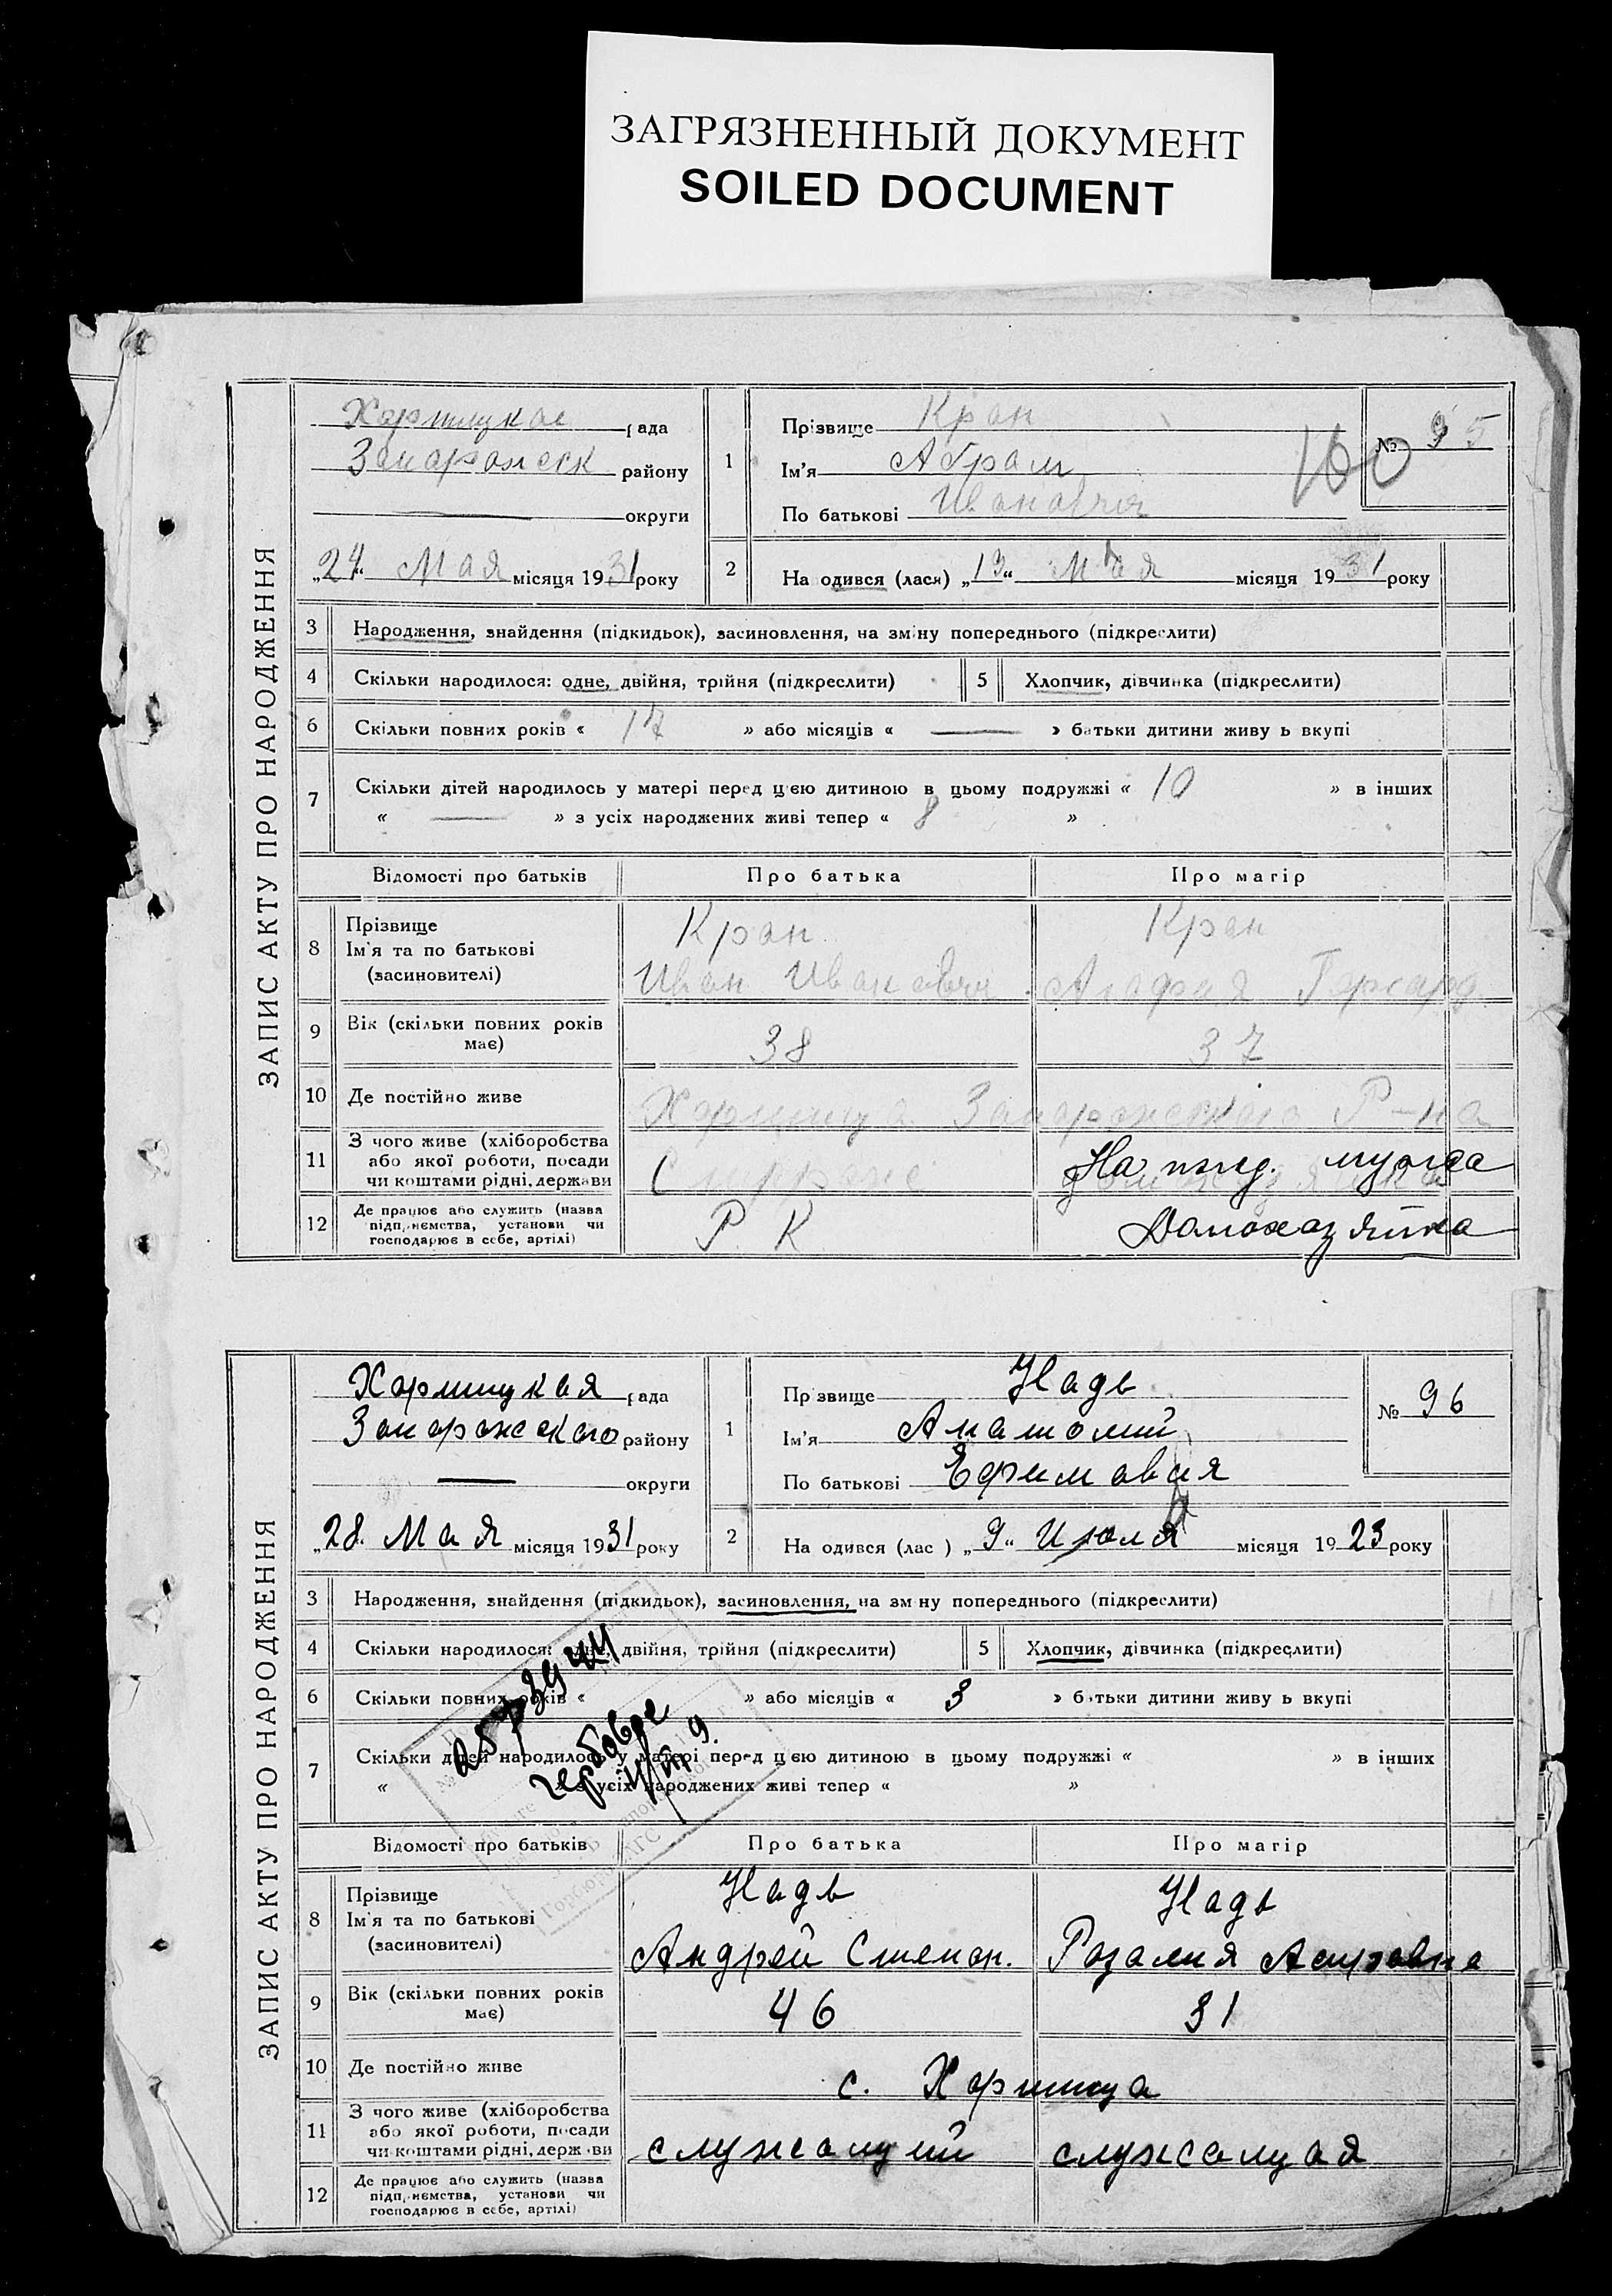 ЗАГРЯЗНЕННЫЙ ДОКУМЕНТ
SOILED DOCUMENT
ЗАПИС АКТУ ПРО НАРОДЖЕННЯ
Хортицкая рада
Запорожск району
округи
„24“ Мая місяця 1931 року
1
Прізвище Кран
Ім'я Абрам
По батькові Иванович
№ 95
160
2
На одився (лася) „13“ Мая місяця 1931 року
3 Народження, знайдення (підкидьок), засиновлення, на зміну попереднього (підкреслити)
4 Скільки народилося: одне, двійня, трійня (підкреслити)
5 Хлопчик, дівчинка (підкреслити)
6 Скільки повних років « 17 » або місяців « — » батьки дитини живу ь вкупі
7 Скільки дітей народилось у матері перед цією дитиною в цьому подружжі « 10 » в інших
« — » з усіх народжених живі тепер « 8 »
Відомості про батьків Про батька Про матір
8 Прізвище
Ім'я та по батькові
(засиновителі)
Кран
Иван Иванович
Кран
Агафия Герхард
9 Вік (скільки повних років
має)
38 37
10 Де постійно живе
Хортица Запорожского Р-на
11 З чого живе (хліборобства
або якої роботи, посади
чи коштами рідні, держави
На ижд. мужа
12 Де працює або служить (назва
підприємства, установи чи
господарює в себе, артілі)
Р К
Домохазяйка
ЗАПИС АКТУ ПРО НАРОДЖЕННЯ
Хортицкая рада
Запорожского району
округи
„28. Мая місяця 1931 року
1
Пр звище Надь
Ім'я Анатолий
По батькові Ефимовия
№ 96
2
На одився (лас ) „9“ Июля місяця 1923 року
3 Народження, знайдення (підкидьок), засиновлення, на зм ну попереднього (підкреслити)
4 Скільки народилося: одне, двійня, трійня (підкреслити)
5 Хлопчик, дівчинка (підкреслити)
6 Скільки повних років « » або місяців « 3 » батьки дитини живу ь вкупі
7 Скільки дітей народилось у матері перед цією дитиною в цьому подружжі « » в інших
« » з усіх народжених живі тепер « »
Відомості про батьків Про батька Про матір
8 Прізвище
Ім'я та по батькові
(засиновителі)
Надь
Андрей Степан.
Надь
Розалия
9 Вік (скільки повних років
має)
46 31
10 Де постійно живе
с. Хортица
11 З чого живе (хліборобства
або якої роботи, посади
чи коштами рідні, держ ви
служащий служащая
12 Де працює або служить (назва
підприємства, установи чи
господарює в себе, артілі)